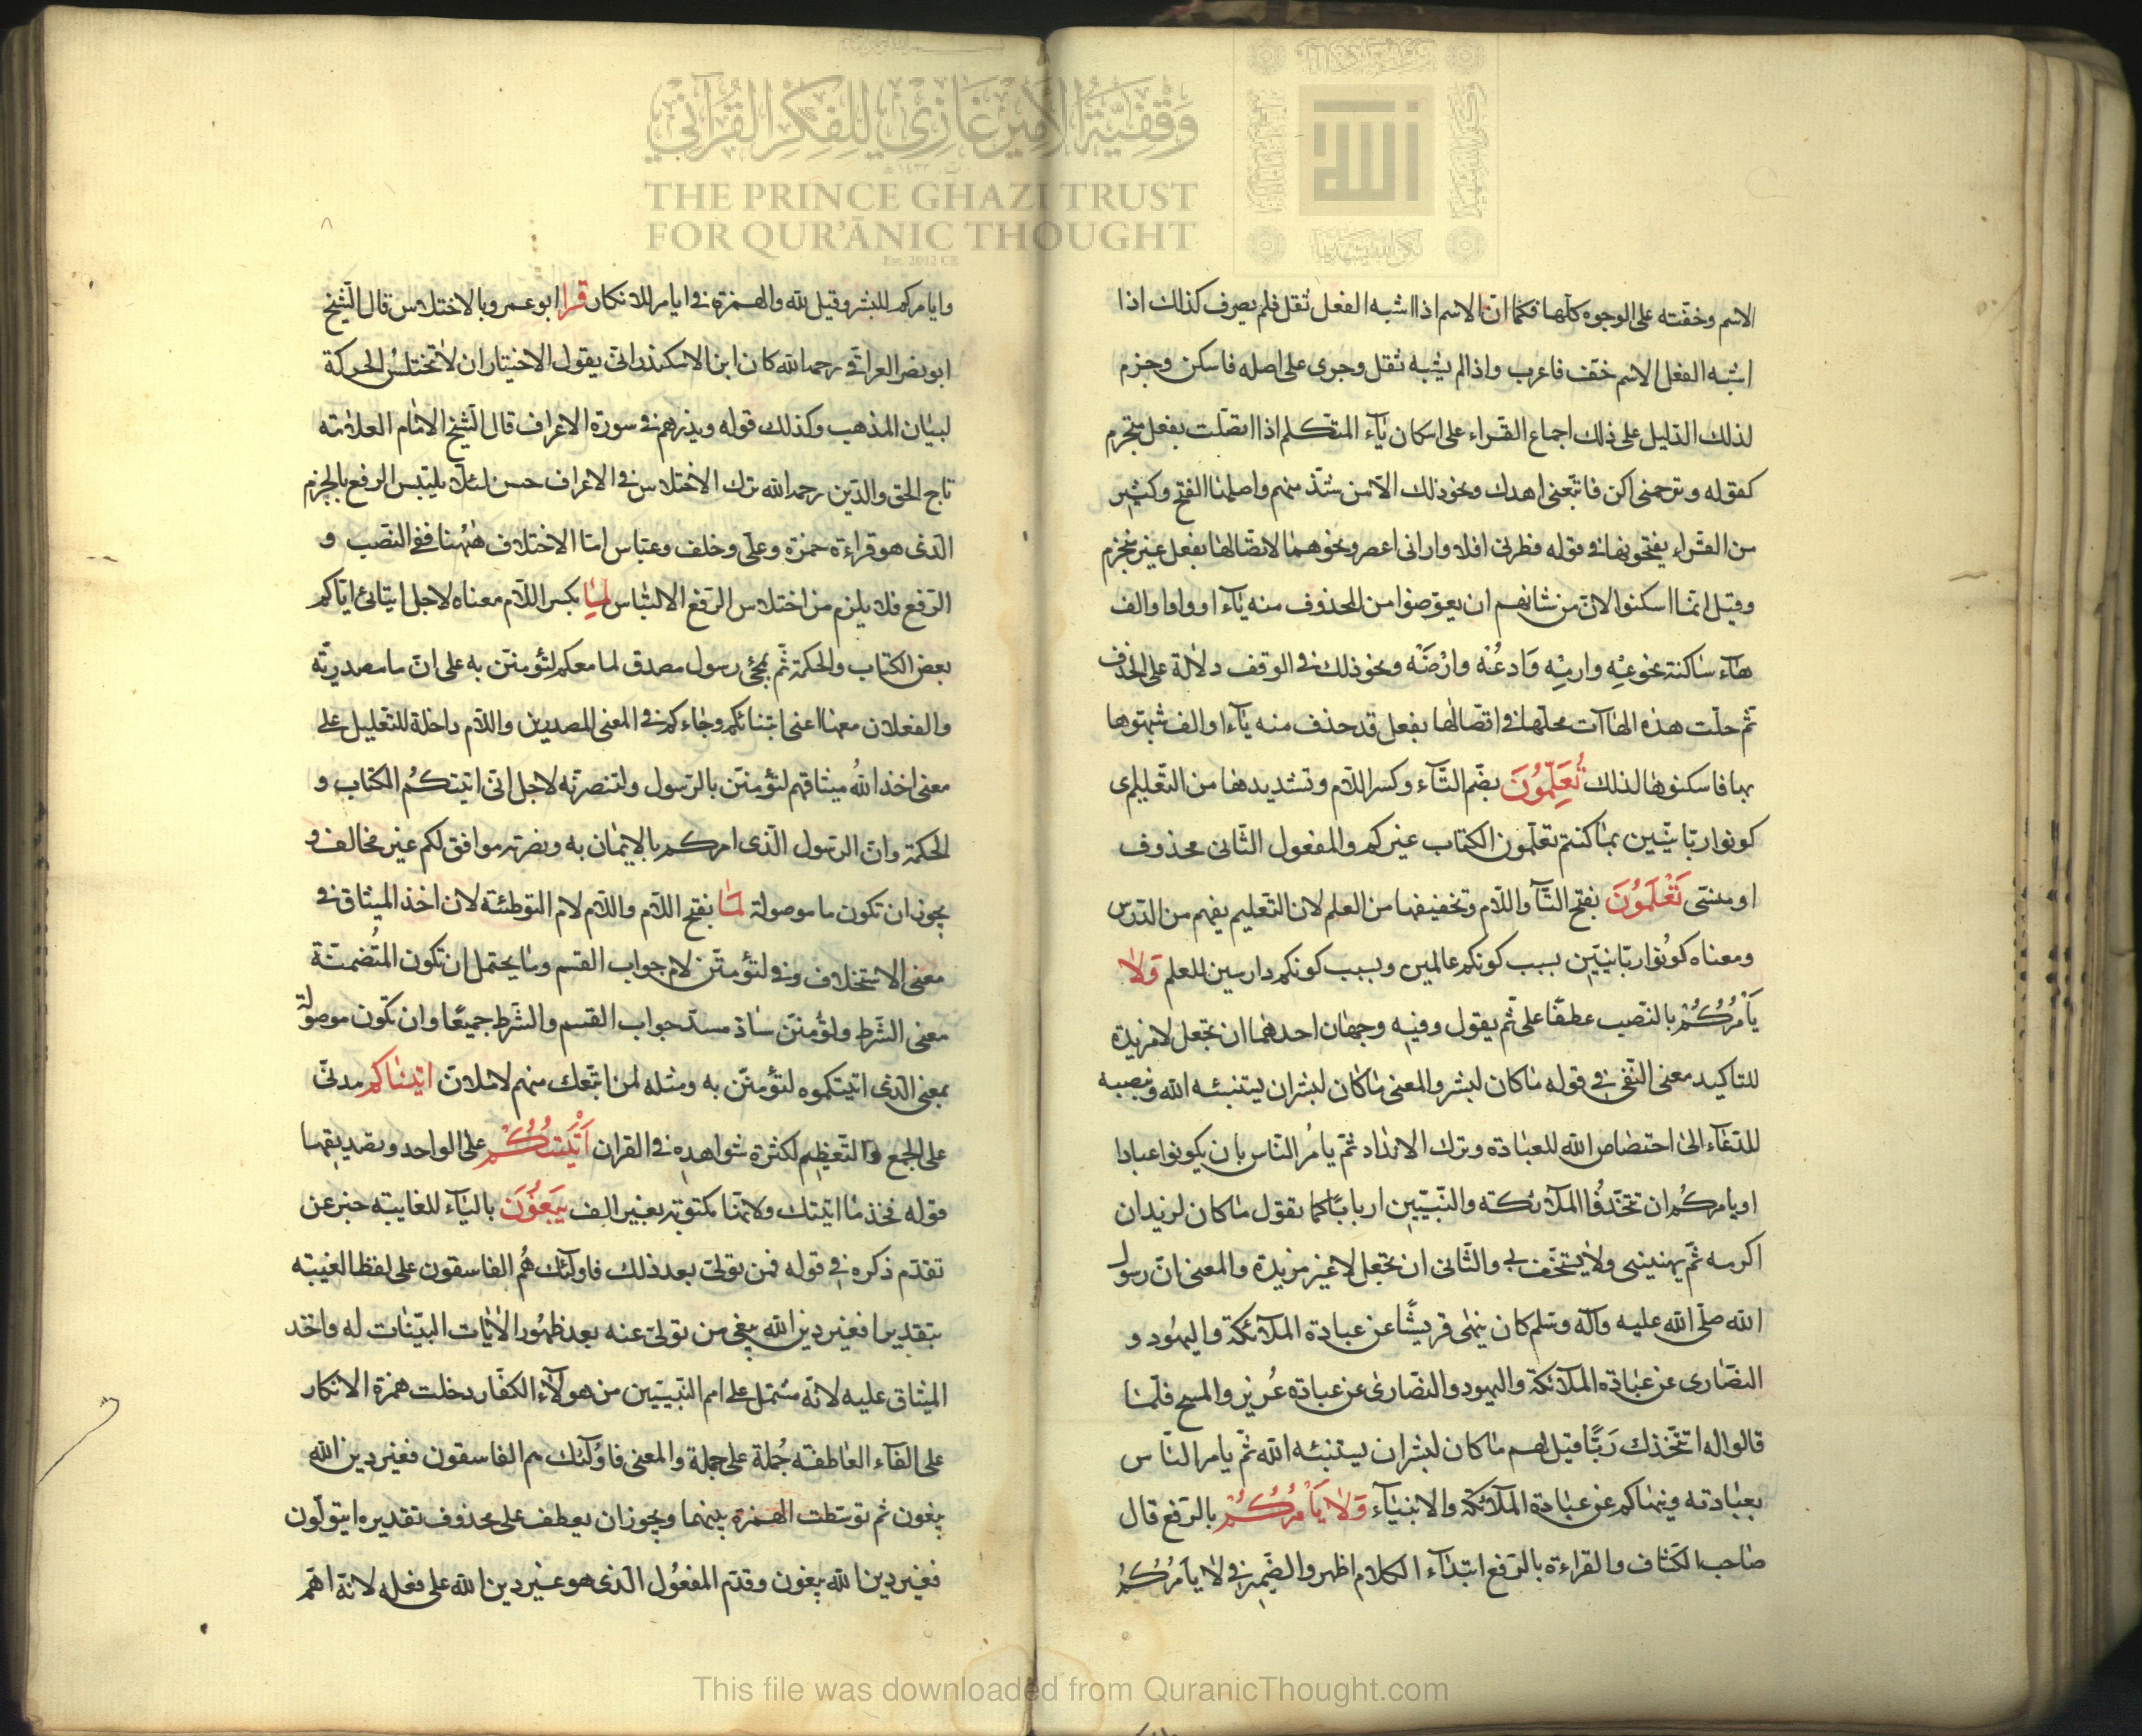 وقفية الأمير غازي للفكر القرآني
THE PRINCE GHAZI TRUST
FOR QUR'ĀNIC THOUGHT
Est. 2012 CE
الاسم وخفته على الوجوه كلها فكما انّ الاسم اذا اشبه الفعل ثقل فلم يصرف كذلك اذا
اشبه الفعل الاسم خفف فاعرب واذا لم يشبه ثقل وجرى على اصله فاسكن وجزم
لذلك الدّليل على ذلك اجماع القرّاء على اسكان ياء المتكلم اذا اتصلت بفعل منجزم
كقوله وترحمنى اكن فاتبعنى اهدك ونحو ذلك الا من شذّ منهم واصلها الفتح وكثير
من القراء يفتحونها فى قوله فطرنى افلا وارانى اعصر ونحوهما لاتصالها بفعل غير منجزم
وقيل انما اسكنوا لانّ من شانهم ان يعوّضوا من المحذوف منه ياء او واو او الف
هاء ساكنة نحو عِهْ وارمِهْ وَادعُهْ وارْضَهْ ونحو ذلك فى الوقف دلالة على الحذف
ثم حلّت هذه الهاآت محلها فى اتصالها بفعل قد حذف منه ياء او الف شبهوها
بها فاسكنوها لذلك تُعَلِّمُونَ بضم التاء وكسر اللّام وتشديدها من التعليم اى
كونوا ربّانيّين بما كنتم تعلّمون الكتاب غيركم والمفعول الثّانى محذوف
او منسى تَعْلَمُونَ بفتح التاء واللّام وتخفيفها من العلم لان التعليم يفهم من الدّرس
ومعناه كونوا ربّانيّين بسبب كونكم عالمين وبسبب كونكم دارسين للعلم وَلا
يَأمُرُكُمْ بالنّصب عطفًا على ثم يقول وفيه وجهان احدهما ان تجعل لا مزيدة
للتاكيد معنى النّفى فى قوله ما كان لبشر والمعنى ما كان لبشر ان يستنبئه الله وينصبه
للدّعاء الى اختصاص الله للعبادة وترك الانداد ثم يامُر النّاس بان يكونوا عبادا
او يامركُم ان تتخذوا الملآئكة والنّبيّين اربابًا كما تقول ما كان لزيد ان
اكرمه ثمّ يهيننى ولا يستخف بى والثّانى ان تجعل لا غير مزيدة والمعنى انّ رسول
الله صلّى الله عليه وآله وسلم كان ينهى قريشًا عن عبادة الملآئكة واليهود و
النصارى عن عبادة الملآئكة واليهود والنصارى عن عبادة عُزير والمسيح فلمّا
قالوا له انتخذك رَبًّا قيل لهم ما كان لبشر ان يستنبئه الله ثمّ يامر النّاس
بعبادته وينهاكم عن عبادة الملآئكة والانبيآء وَلا يَأمُرُكُمْ بالرّفع قال
صاحب الكشاف والقراءة بالرّفع ابتدآء الكلام اظهر والضّمير فى لا يامُركُمْ
وايامركم للبشر وقيل لله والهمزة فى ايامر للانكار قرا ابو عمرو بالاختلاس قال الشيخ
ابو نصر العراقى رحمه الله كان ابن الاسكندرانى يقول الاختيار ان لا تختلسُ الحركة
لبيان المذهب وكذلك قوله ويذرهم فى سورة الاعراف قال الشّيخ الامام العلامة
تاج الحق والدّين رحمه الله ترك الاختلاس فى الاعراف حسن لئلا يلتبس الرفع بالجزم
الّذى هو قراءة حمزة وعلى وخلف وعباس امّا الاختلاف هٰهُنا ففى النّصب و
الرّفع فلا يلزم من اختلاس الرّفع الالتباس لِمَا بكسر اللّام معناه لاجل ايتائى ايّاكم
بعض الكتاب والحكمة ثم لمجئ رسول مصدق لما معكم لتؤمننّ به على انّ ما مصدريّة
والفعلان معها اعنى اتيناكم وجاءكم فى المعنى المصدرين واللّام داخلة للتّعليل على
معنى اخذ اللهُ ميثاقهم لتؤمننّ بالرّسول ولتنصرنّه لاجل انّى اتيتكُم الكتاب و
الحكمة وانّ الرّسول الّذى امركم بالايمان به ونصرته موافق لكم غير مخالف و
يجوز ان تكون ما موصولة لَمَا بفتح اللّام واللّام لام التوطئة لان اخذ الميثاق فى
معنى الاستحلاف وفى لتؤمننّ لام جواب القسم وما يحتمل ان تكون المُتضمنة
معنى الشّرط ولتؤمننّ سادّ مسدّ جواب القسم والشّرط جميعًا وان تكون موصولة
بمعنى الّذى اتيتكموه لتؤمننّ به ومثله لمن اتّبعك منهم لاملانّ اتَيْنَاكم مدنىّ
على الجمع والتّعظيم لكثرة شواهده فى القران اَتَيْتُكُمْ على الواحد وتصديقها
قوله فخذ ما اتيتك ولانها مكتوبة بغير الف يَبغُونَ باليآء للغايبة خبر عن
تقدّم ذكره فى قوله فمن تولّى بعد ذلك فاولٓئك هُم الفاسقون على لفظ الغيبة
بتقدير افغير دين الله يبغى من تولّى عنه بعد ظهُور الاٰيات البيّنات له واخذ
الميثاق عليه لانّه مشتمل على امم النّبيّين من هولآء الكفّار دخلت همزة الانكار
على الفآء العاطفة جُملة على جملة والمعنى فاولٓئك هم الفاسقون فغير دين الله
يبغون ثم توسّطت الهمزة بينهما ويجوز ان يعطف على محذوف تقديره ايتولّون
فغير دين الله يبغون وقدّم المفعُول الّذى هو غير دين الله على فعله لانّه اهمّ
This file was downloaded from QuranicThought.com